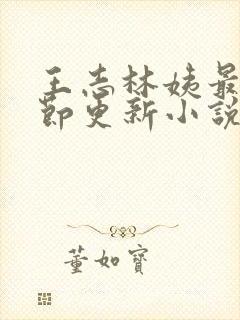 王志林姨最
節更新小說
董如寶